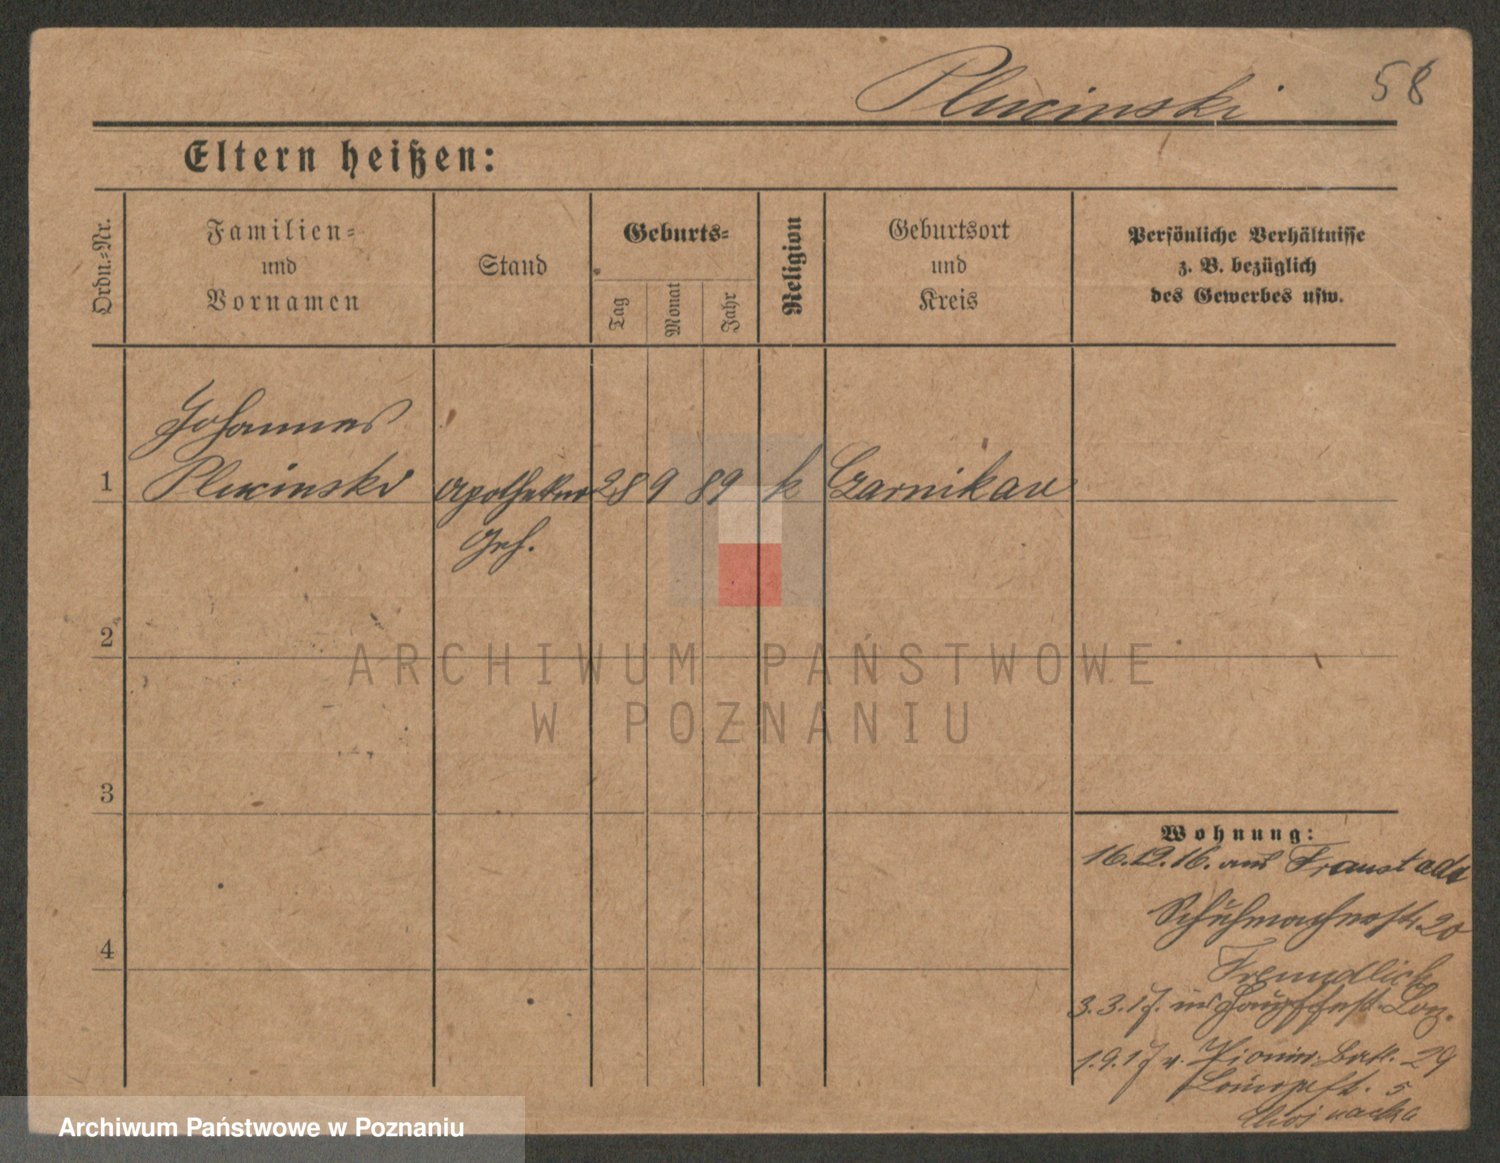 Plucinski 58
Eltern heißen:
Ordn.-Nr.
Familien-
und
Vornamen
Stand
Geburts-
Tag
Monat
Jahr
Religion
Geburtsort
und
Kreis
Persönliche Verhältnisse
z. B. bezüglich
des Gewerbes usw.
Johannes
1 Plucinski Apotheker 28 9 89 k Czarnikau
Geh.
2
ARCHIWUM PAŃSTWOWE
W POZNANIU
3
Wohnung:
16.12.16. aus Fraustadt
Schuhmacherstr. 20
4
Freundlich
3.3.17. ins
1.9.17 v. Pionier Batl. 29
5
Archiwum Państwowe w Poznaniu